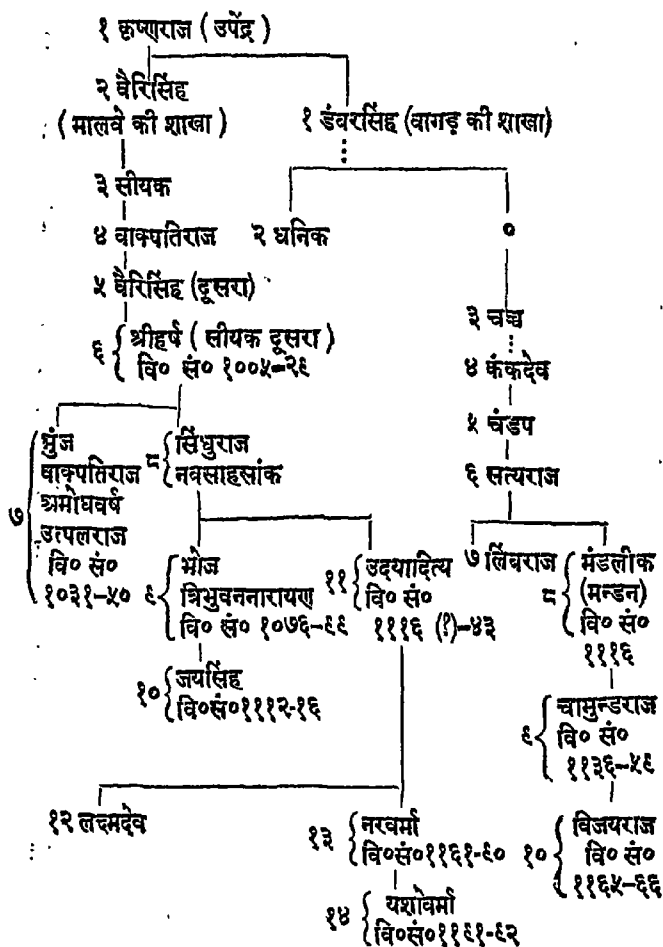 १ कृष्णराज ( उपेंद्र )
२ वैरिसिंह
( मालवे की शाखा )
१ डंवरसिंह (वागड़ की शाखा)
३ सीयक
४ वाक्पतिराज
२ धनिक
०
५ वैरिसिंह (दूसरा)
३ चच्च
६ श्रीहर्ष ( सीयक दूसरा )
वि० सं० १००५-२९
४ कंकदेव
५ चंडप
६ सत्यराज
७ मुंज
वाक्पतिराज
अमोघवर्ष
उत्पलराज
वि० सं०
१०३१-५०
८ सिंधुराज
नवसाहसांक
९ भोज
त्रिभुवननारायण
वि० सं० १०७६-९९
११ उदयादित्य
वि० सं०
१११६ (?)-४३
७ लिंबराज
८ मंडलीक
(मन्डन)
वि० सं०
१११६
१० जयसिंह
वि०सं०१११२-१६
९ चामुन्डराज
वि० सं०
११३६-५९
१२ लक्ष्मदेव
१३ नरवर्मा
वि०सं०११६१-९०
१० विजयराज
वि० सं०
११६५-६६
१४ यशोवर्मा
वि०सं०११९१-९२